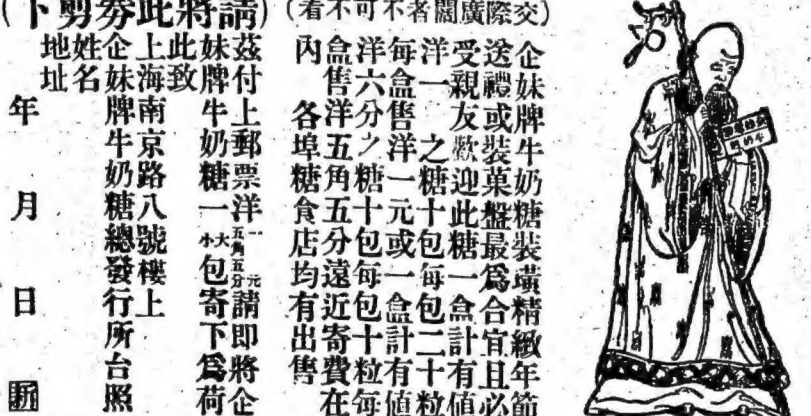 交際廣闊者不可不看)
企妹牌牛奶糖裝璜精緻年節
送禮或裝菓盤最爲合宜且必
受親友歡迎此糖一盒計有値
洋一 之糖十包每包二十粒
每盒售洋一元或一盒計有値
洋六分之糖十包每包十粒每
盒售洋五角五分遠近寄費在
內 各埠糖食店均有出售
(請將此券剪下)
茲付上郵票洋一元五角五分請即將企
妹牌牛奶糖一大小包寄下爲荷
此致
上海南京路八號樓上
企妹牌牛奶糖總發行所台照
姓名
地址
年 月 日